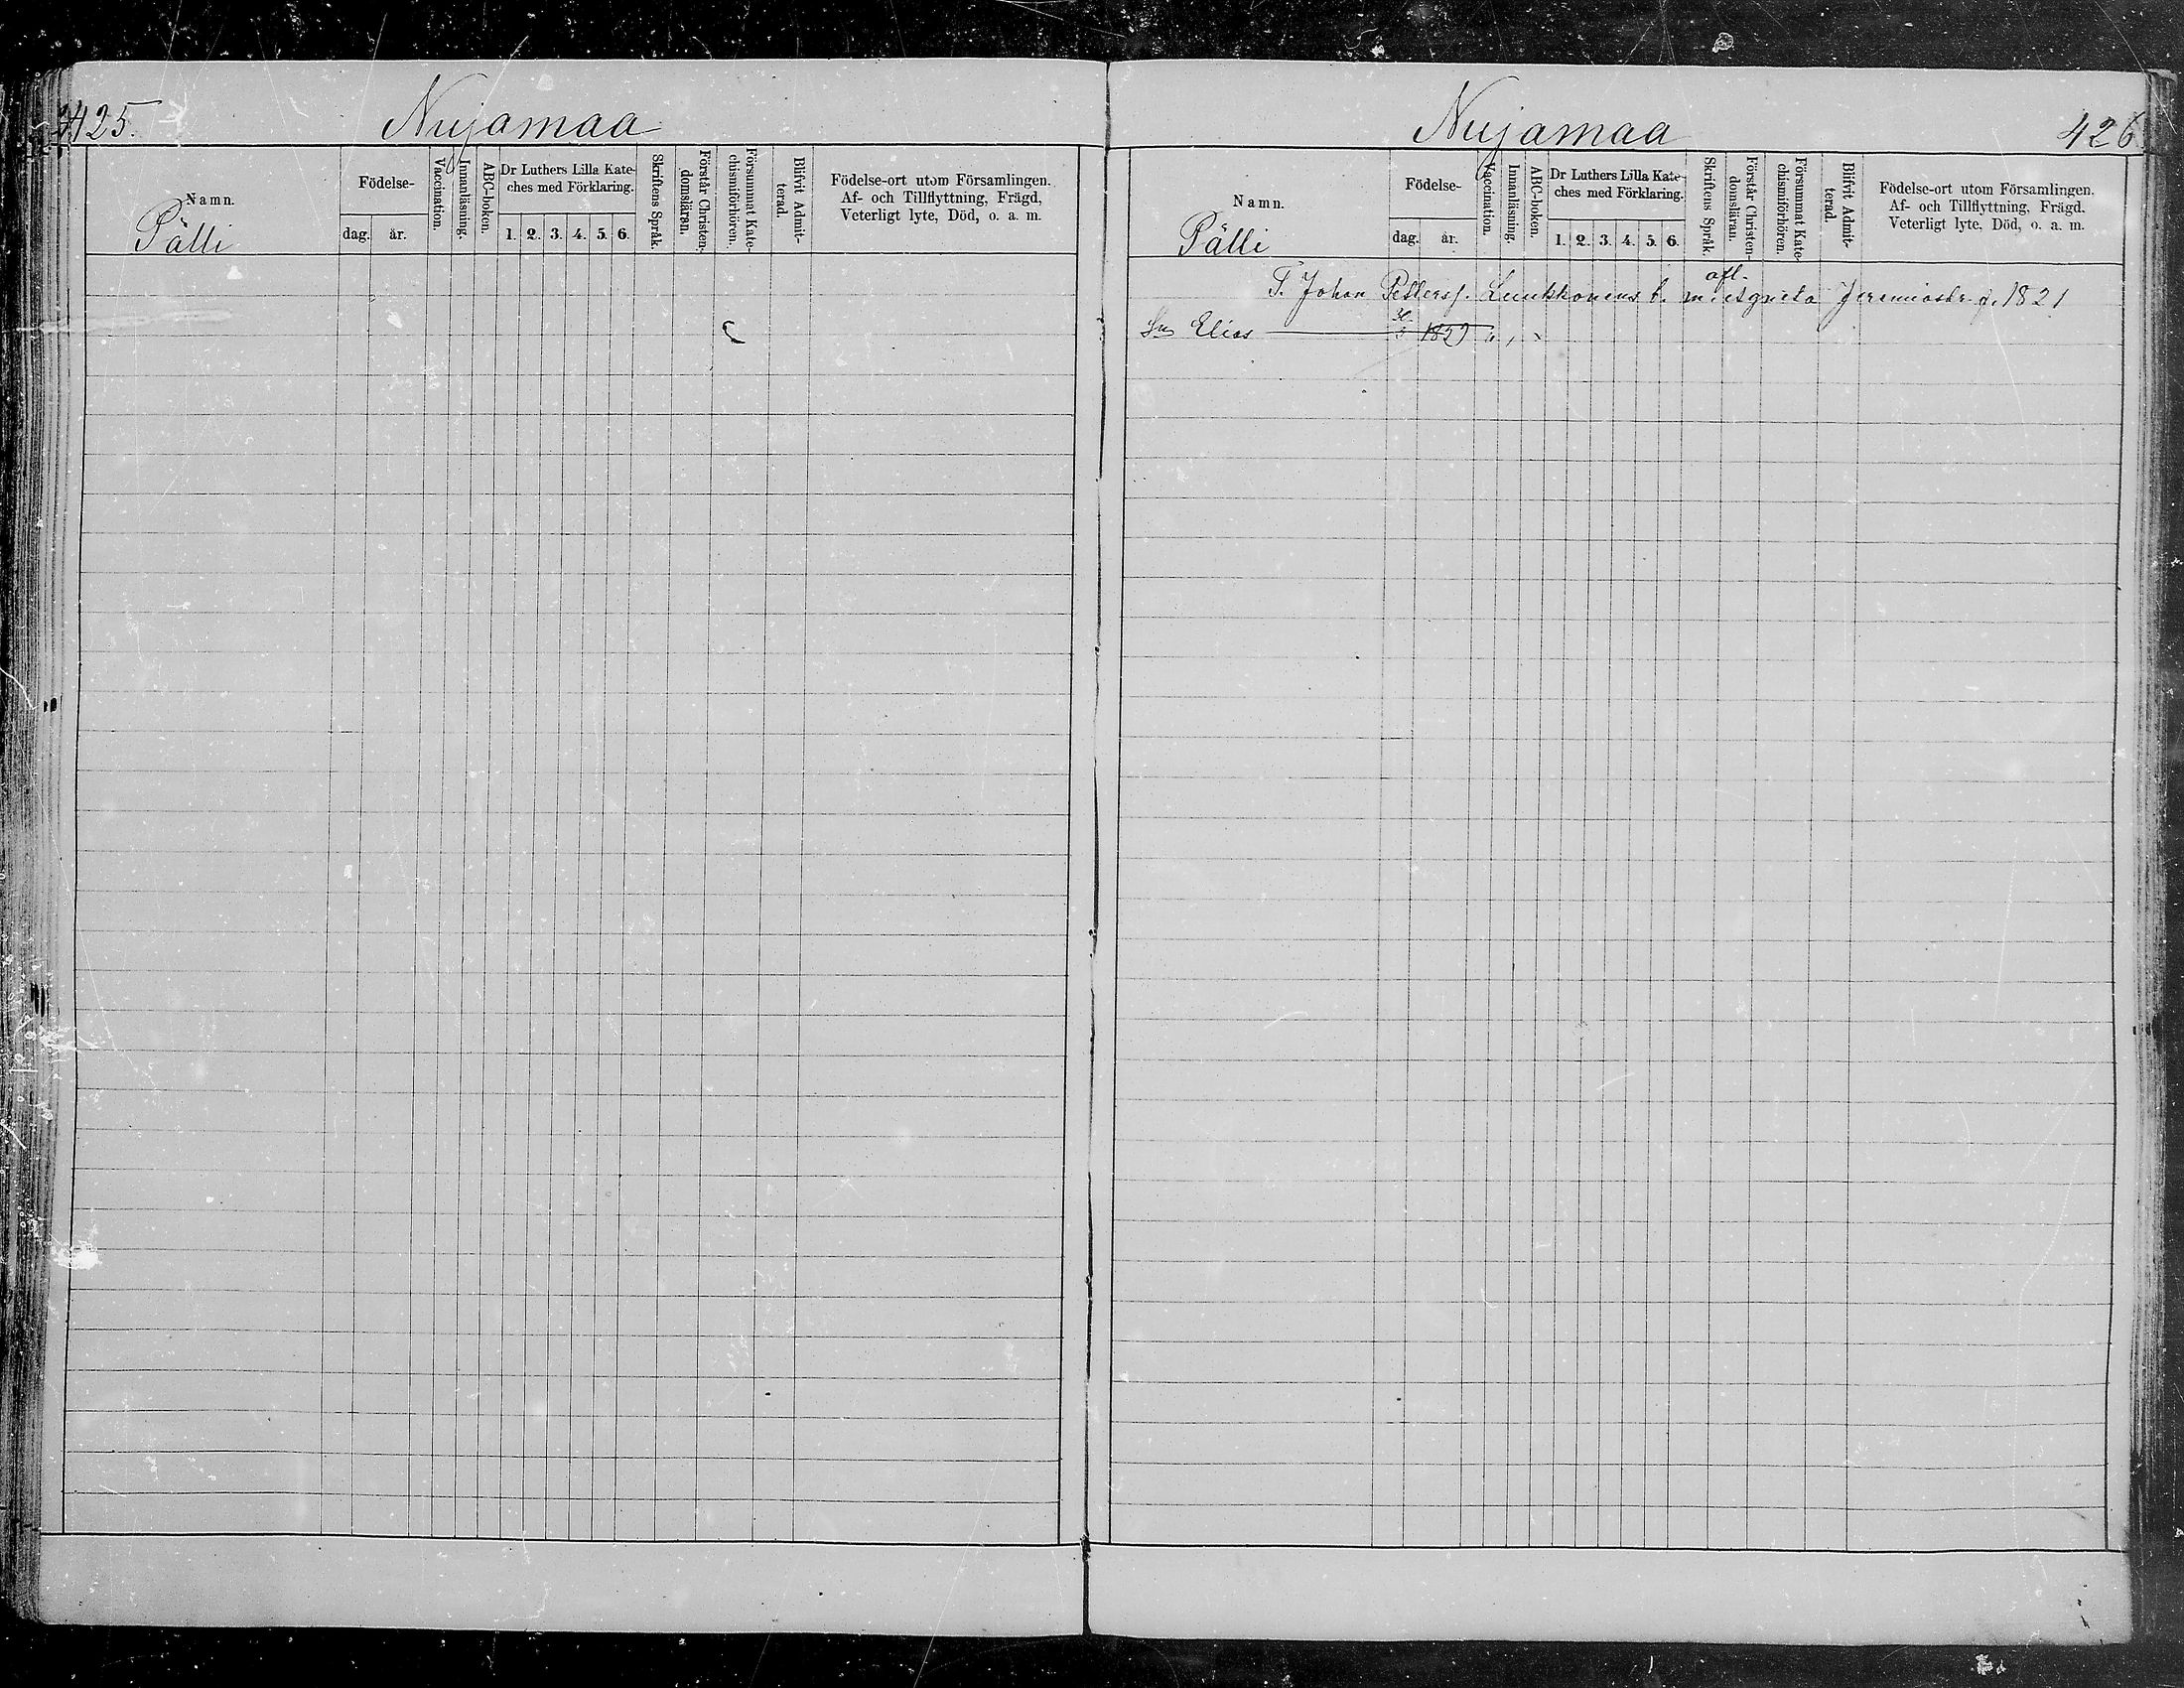 425.
Nujamaa
Namn.
Pälli
Födelse-
dag. år.
Vaccination.
Innanläsning.
ABC-boken.
Dr Luthers Lilla Kate-
ches med Förklaring.
1. 2. 3. 4. 5. 6.
Skriftens Språk.
Förstår Christen-
domsläran.
Försummat Kate-
chismiförhören.
Blifvit Admit-
terad.
Födelse-ort utom Församlingen.
Af- och Tillflyttning, Frägd,
Veterligt lyte, Död, o. a. m.
Nujamaa
426
Namn.
Pälli
Födelse-
dag. år.
Vaccination.
Innanläsning.
ABC-boken.
Dr Luthers Lilla Kate-
ches med Förklaring.
1. 2. 3. 4. 5. 6.
Skriftens Språk.
Förstår Christen-
domsläran.
Försummat Kate-
chismiförhören.
Blifvit Admit-
terad.
Födelse-ort utom Församlingen.
Af- och Tillflyttning, Frägd.
Veterligt lyte, Död, o. a. m.
afl.
T. Johan Petterss. Luukkonens b. m. Agneta Jeremiasdr f. 1821
Elias